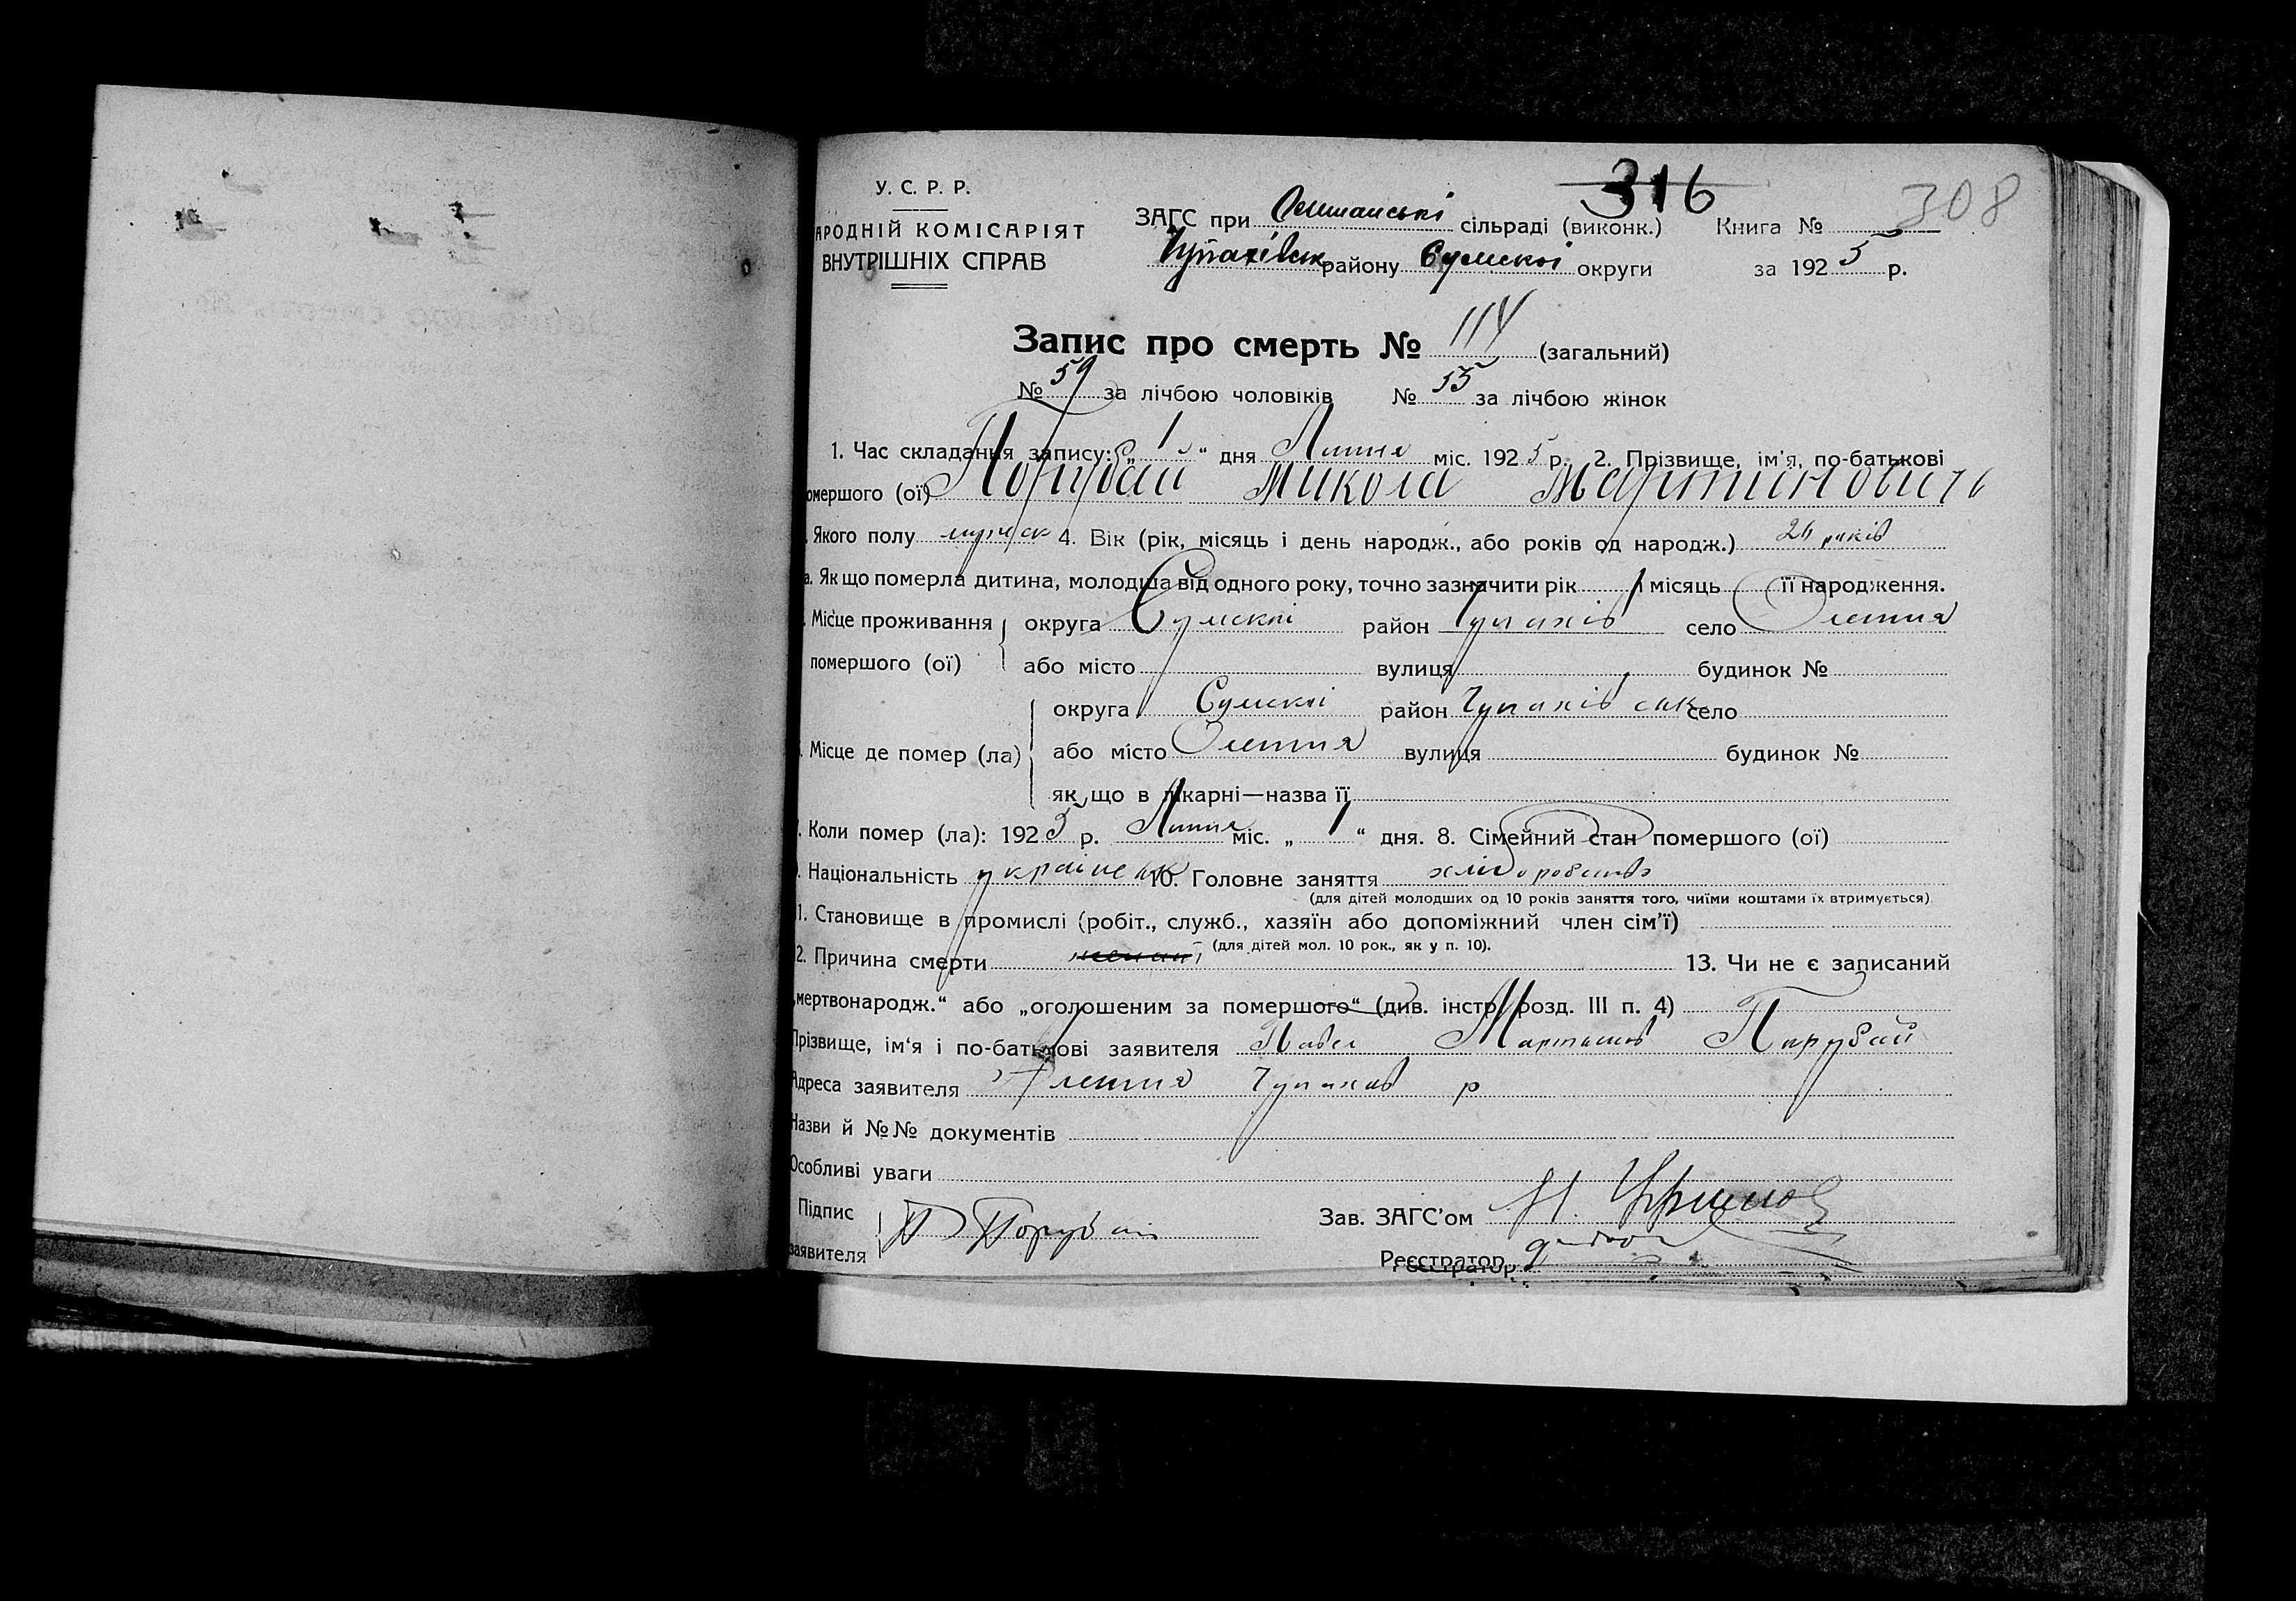 316
308
У. С. Р. Р.
АРОДНІЙ КОМІСАРІЯТ
ВНУТРІШНІХ СПРАВ
ЗАГС при сільраді (виконк.) Книга №
району Сумской округи за 1925 р.
Запис про смерть № 114 (загальний)
№ 59 за лічбою чоловіків № 55 за лічбою жінок
1. Час складання запису: „1“ дня Липня міс. 1925 р. 2. Прізвище, ім'я, по-батькові
омершого (ої) Порубай Микола Мартинович
Якого полу 4. Вік (рік, місяць і день народж., або років од народж.) років
а. Якщо померла дитина, молодша від одного року, точно зазначити рік місяць її народження.
Місце проживання округа Сумскої район Чупахів село
помершого (ої) або місто вулиця будинок №
округа Сумскої район Чупахів село
Місце де помер (ла) або місто вулиця будинок №
якщо в лікарні—назва її
Коли помер (ла): 1925 р. Липня міс. „1“ дня. 8. Сімейний стан помершого (ої)
. Національність українець 10. Головне заняття хлібороб
(для дітей молодших од 10 років заняття того, чиїми коштами їх втримується)
1. Становище в промислі (робіт., служб., хазяїн або допоміжний член сім'ї)
(для дітей мол. 10 рок., як у п. 10).
2. Причина смерти 13. Чи не є записаний
„мертвонародж.“ або „оголошеним за помершого“ (див. інстр. розд. III п. 4)
Прізвище, ім'я і по-батькові заявителя Павел Мартинов Парубай
Адреса заявителя Чупахов р
Назви й №№ документів
Особливі уваги
Підпис П Порубай Зав. ЗАГС'ом
заявителя Реєстратор